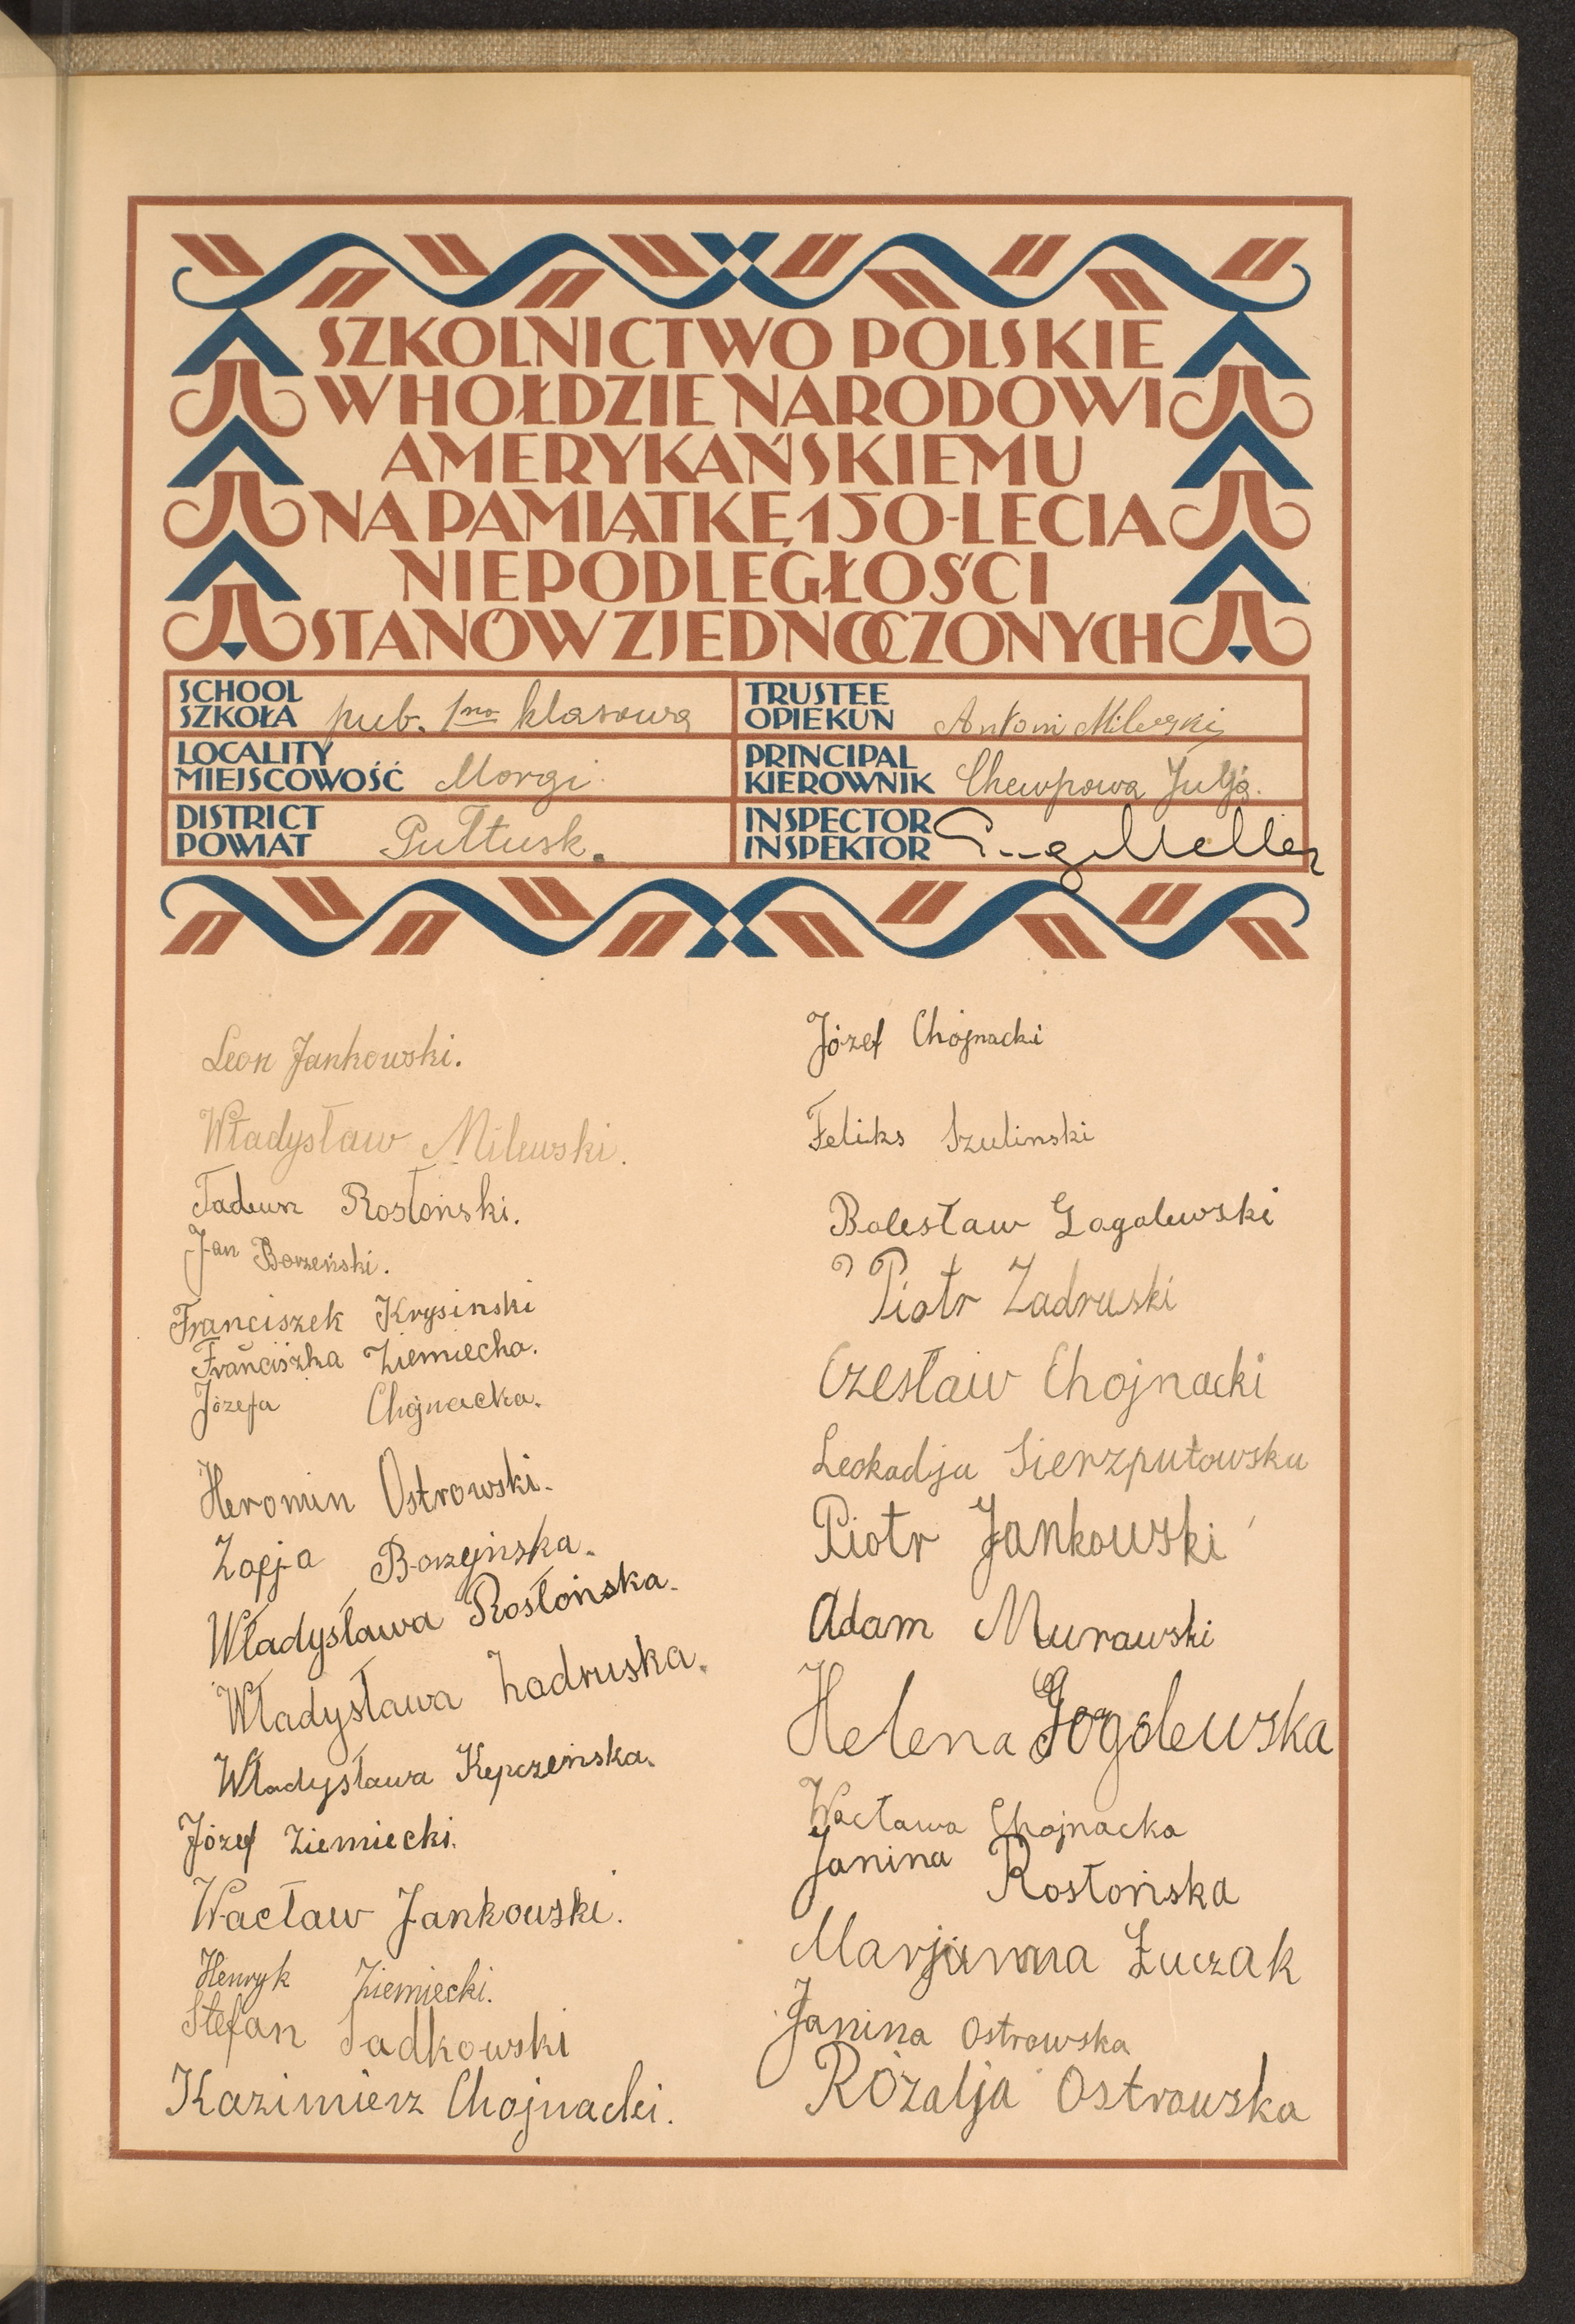 SZKOLNICTWO POLSKIE
W HOŁDZIE NARODOWI
AMERYKAŃSKIEMU
NA PAMIĄTKĘ 150-LECIA
NIEPODLEGŁOŚCI
STANÓW ZJEDNOCZONYCH
SCHOOL
SZKOŁA pub. 1no klasowa
LOCALITY
MIEJSCOWOŚĆ Morgi
DISTRICT
POWIAT Pułtusk.
TRUSTEE
OPIEKUN Antoni Milewski
PRINCIPAL
KIEROWNIK Chewpowa Julja.
INSPECTOR
INSPEKTOR
Leon Jankowski.
Władysław Milewski.
Tadeusz Rosłoński.
Jan Borzeński.
Franciszek Krysinski
Franciszka Ziemiecka.
Józefa Chojnacka.
Heronin Ostrowski.
Zofja Borzeyńska.
Władysława Rosłońska.
Władysława Zadruska.
Władysława Kępczeńska.
Józef Ziemiecki.
Wacław Jankowski.
Henryk Ziemiecki.
Stefan Sadkowski
Kazimierz Chojnacki.
Józef Chojnacki
Feliks Szulinski
Bolesław Gogolewski
Piotr Zadruski
Czesław Chojnacki
Leokadja Sierzputowska
Piotr Jankowski
Adam Murawski
Helena Gogolewska
Wacława Chojnacka
Janina Rosłońska
Marjanna Łuczak
Janina Ostrowska
Rózalja Ostrowska